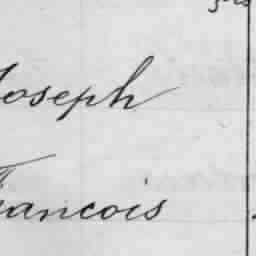 Joseph
Francois